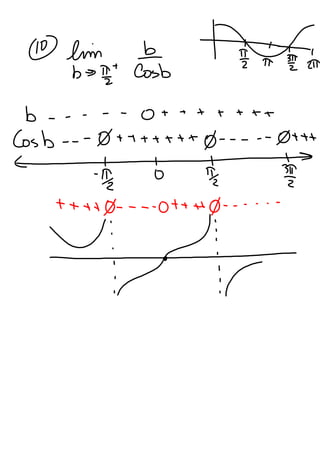 10 lim b→π/2⁺ b/Cosb
π/2 π 3π/2 2π
b - - - - - - 0 + + + + + + +
Cosb - - - Ø + + + + + + + Ø - - - - - Ø + + +
-π/2 0 π/2 3π/2
+ + + + Ø - - - - 0 + + + + Ø - - - - - -